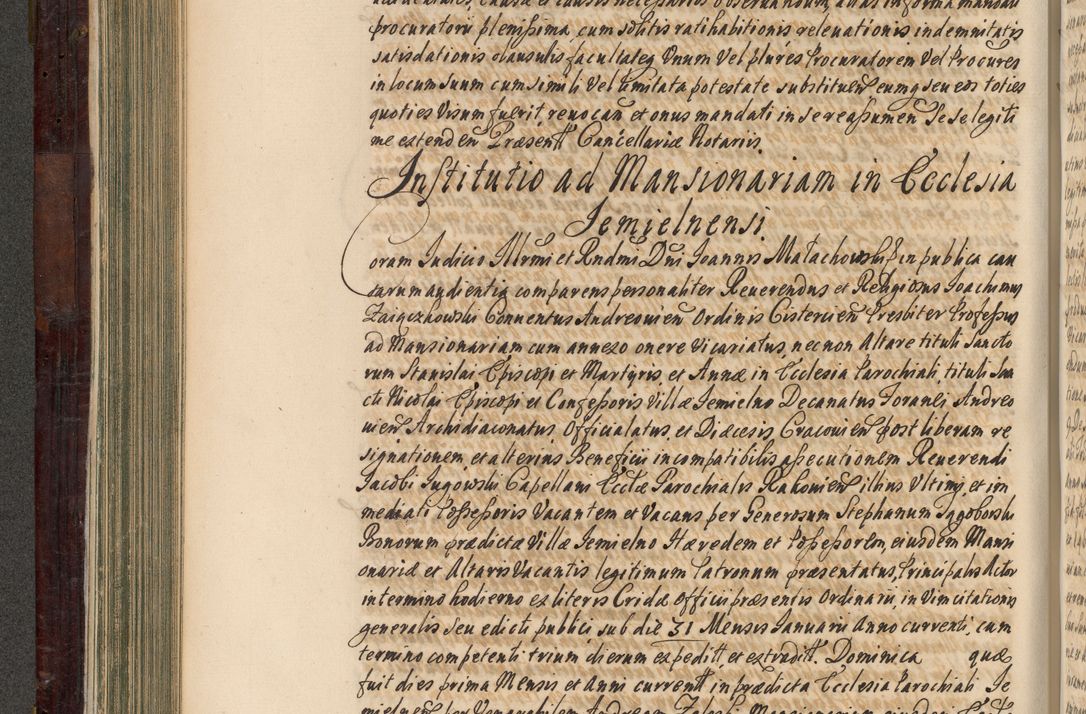 procuratorii plenissima, cum solitis ratihabitionis releuationis indemnitatis
satisdationis clausulis facultateq Vnum Vel plures Procuratorem Vel Procures
in locum suum cum simili Vel limitata potestate substituen eumq seu eos toties
quoties Visum fuerit, reuocan et onus mandati in se reassumen Se se legiti
me extenden Præsentt Cancellariæ Notariis.
Institutio ad Mansionariam in Ecclesia
Jemielnensi.
Coram Judicio Illrmi et Rndmi Dni Joannis Małachowski in publica cau
sarum audientia comparens personaliter Reuerendus et Religiosus Joachimus
Zaigczkowski Conuentus Andreouien Ordinis Cistercien Presbiter Professus
ad Mansionariam cum annexo onere Vicariatus, necnon Altare tituli Sancto
rum Stanislai Episcopi et Martyris, et Annæ in Ecclesia Parochiali, tituli San
cti Nicolai Episcopi et Confessoris Villæ Jemielno Decanatus Foranei Andreo
uien Archidiaconatus Officialatus, et Diæcesis Cracouien post liberam re
signationem, et alterius Beneficii incompatibilis assecutionem Reuerendi
Jacobi Jugowski Capellani Ecclæ Parochialis Rakouien illius Vltimi, et im
mediati Possessoris Vacantem et Vacans per Generosum Stephanum Jngoborski
Bonorum prædictæ Villæ Jemielno Hæredem et Possessorem, eiusdem Mansi
onariæ et Altaris Vacantis legitimum Patronum præsentatus, Principalis Actor
in termino hodierno ex literis Cridæ Officii præsentis Ordinarii, in Vim citationis
generalis seu edicti publici sub die 31 Mensis Januarii Anno currenti, cum
termino competenti trium dierum expeditt, et extraditt. Dominica quæ
fuit dies prima Mensis et Anni currentt in prædicta Ecclesia Parochiali Je